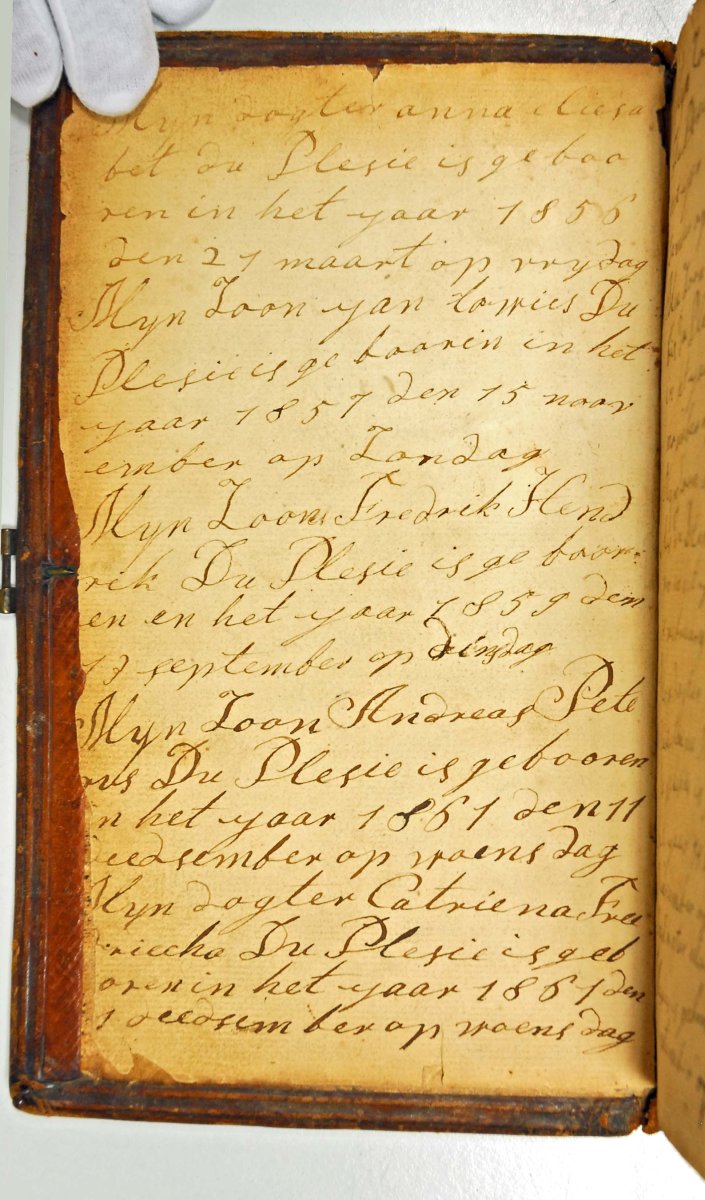 Myn dogter anna Eliesa
bet du Plesie is geboo
ren in het yaar 1856
den 21 maart op vrydag
Myn Zoon yan Lowies Du
Plesie is ge boaren in het
yaar 1857 den 15 noov
ember op Zondag
Myn Zoon Fredrik Hend
rik Du Plesie is ge boor
en en het yaar 1859 den
13 september op dinsdag
Myn Zoon Andreas Pete
rus Du Plesie is gebooren
in het yaar 1861 den 11
deedsember op woensdag
Myn dogter Catriena Free
driecha Du Plesie is geb
oren in het yaar 1861 den
11 deedsember op woensdag